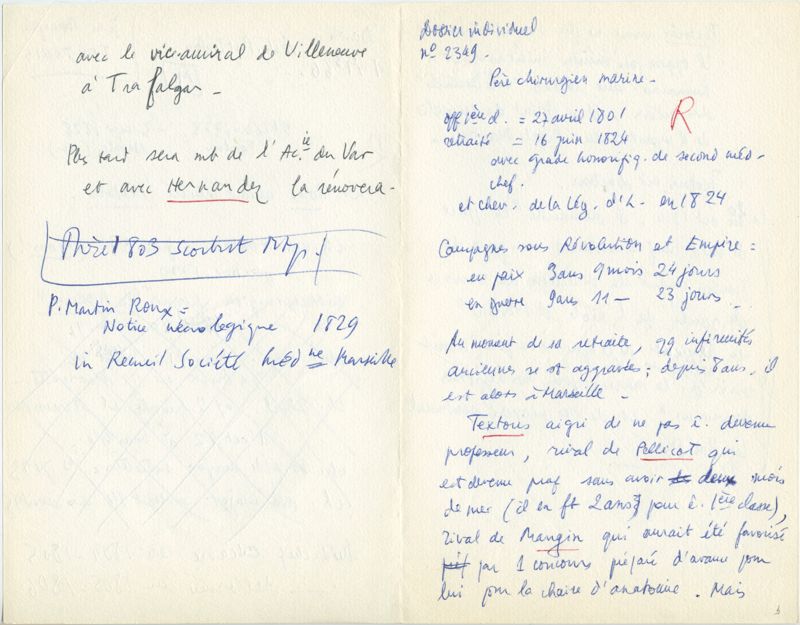 avec le vice-amiral de Villeneuve
à Trafalgar _
Plus tard sera mb de l'Ac.ie du Var
et avec Hernandez la rénovera -
Thèse 1803 Scorbut Mtp.
P. Martin Roux =
Notice nécrologique 1829
in Recueil Société Méd.ne Marseille
Dossier individuel
n° 2349.
Père chirurgien marine -
off. d. = 27 avril 1801
R
retraité = 16 juin 1824
avec grade honorifiq. de second méd-
chef.
et chev. de la Lég. d'h. en 1824
Campagnes sous Révolution et Empire =
en paix 3 ans 9 mois 24 jours
en guerre 9 ans 11 — 23 jours _
Au moment de sa retraite, qq infirmités
anciennes se st aggravées ; depuis 8 ans, il
est alors à Marseille _
Textoris aigri de ne pas ê. devenu
professeur, rival de Pellicot qui
est devenu prof sans avoir deux mois
de mer (il en ft 2 ans pour ê. 1ère classe),
rival de Mangin qui aurait été favorisé
par 1 concours préparé d'avance pour
lui pour la chaire d'anatomie. Mais